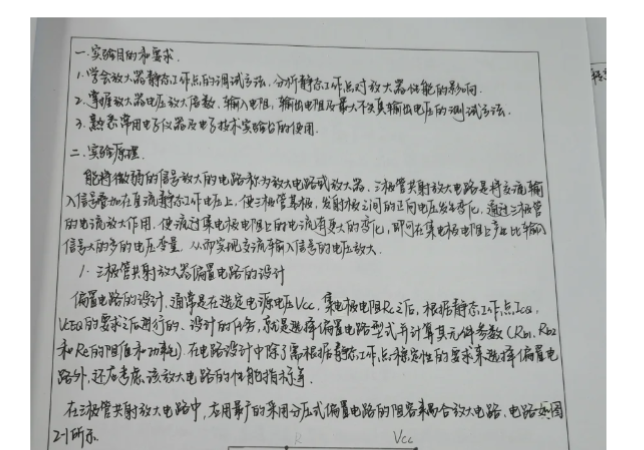 一.实验目的和要求.
1.学会放大器静态工作点的调试方法.分析静态工作点对放大器性能的影响.
2.掌握放大器电压放大倍数、输入电阻,输出电阻及最大不失真输出电压的测试方法.
3.熟悉常用电子仪器及电子技术实验台的使用.
二.实验原理.
能将微弱的信号放大的电路称为放大电路或放大器.三极管共射放大电路是将交流输
入信号叠加在直流静态工作电压上,使三极管基极,发射极之间的正向电压发生变化,通过三极管
的电流放大作用,使流过集电极电阻上的电流有更大的变化,即可在集电极电阻上产生比输入
信号大的多的电压变量.从而实现交流输入信号的电压放大.
1.三极管共射放大器偏置电路的设计
偏置电路的设计,通常是在选定电源电压Vcc,集电极电阻Rc之后,根据静态工作点ICQ,
VCEQ的要求之后进行的.设计的任务,就是选择偏置电路型式并计算其元件参数(Rb1,Rb2
和Re的阻值和功耗)在电路设计中除了需根据静态工作点稳定性的要求来选择偏置电
路外,还应考虑该放大电路的性能指标等.
在三极管共射放大电路中,应用最广的采用分压式偏置电路的阻容耦合放大电路,电路如图
2-1所示
Vcc